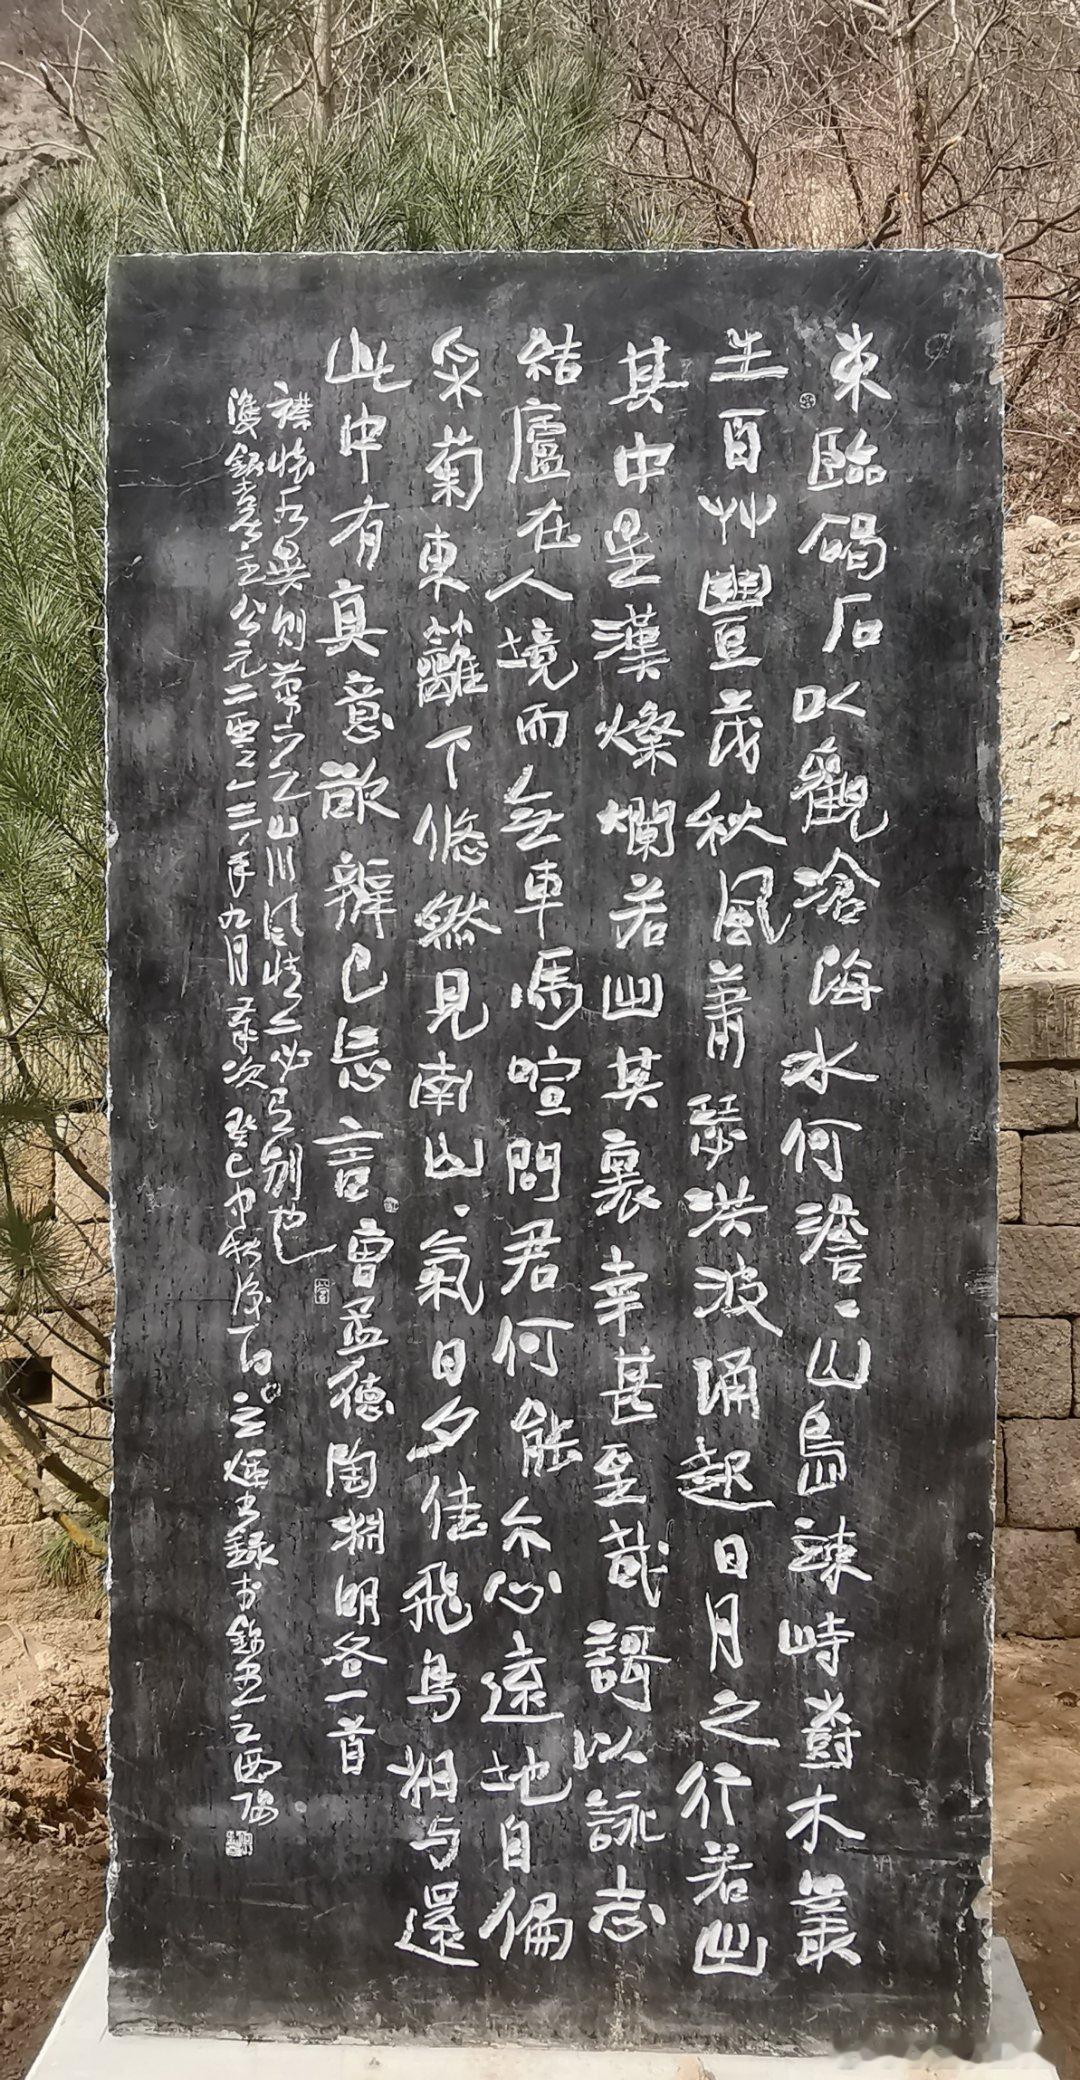 東臨碣石以觀滄海水何澹〻山島竦峙樹木叢
生百艸豐茂秋風蕭瑟洪波涌起日月之行若出
其中星漢燦爛若出其裏幸甚至哉謌以詠志
結廬在人境而無車馬喧問君何能尒心遠地自偏
采菊東籬下悠然見南山〻氣日夕佳飛鳥相与還
此中有真意欲辨已忘言曹孟德陶淵明各一首
襟懷各異則筆下之山川風情亦必有別也
主公元二零一三年九月歲次癸巳中秋後一日